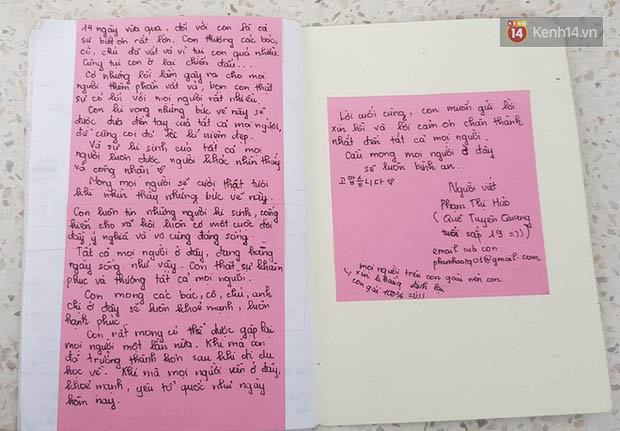 14 ngày vừa qua, đối với con là cả
sự biết ơn rất lớn. Con thương các bác,
cô, chú đã vất vả vì tụi con quá nhiều.
Cùng tụi con ở lại chiến đấu...
Có những lỗi lầm gây ra cho mọi
người thêm phần vất vả, bọn con thật
sự có lỗi với mọi người rất nhiều.
Con hi vọng những bức vẽ này sẽ
được đưa đến tay của tất cả mọi người,
để cũng coi đó là kỉ niệm đẹp.
Và sự hi sinh của tất cả mọi
người luôn được người khác nhìn thấy
và công nhận ♡
Mong mọi người sẽ cười thật tươi
khi nhìn thấy những bức vẽ này.
Con luôn tin những người hi sinh, cống
hiến cho xã hội luôn có một cuộc đời
đầy ý nghĩa và vô cùng đáng sống.
Tất cả mọi người ở đây, đang hằng
ngày sống như vậy. Con thật sự khâm
phục và thương tất cả mọi người.
Con mong các bác, cô, chú, anh
chị ở đây sẽ luôn khoẻ mạnh, luôn
hạnh phúc.
Con rất mong có thể được gặp lại
mọi người một lần nữa. Khi mà con
đã trưởng thành hơn sau khi đi du
học về. Khi mà mọi người vẫn ở đây,
khoẻ mạnh, yêu tổ quốc như ngày
hôm nay.
Lời cuối cùng, con muốn gửi lời
xin lỗi và lời cảm ơn chân thành
nhất đến tất cả mọi người.
Cầu mong mọi người ở đây
sẽ luôn bình an.
고맙습니다 ♡
Người viết
Phạm Thị Hảo
(Quê Tuyên Quang
tuổi sắp 19 =))
email của con:
@gmail.com
mọi người trêu con giai nên con
xin khẳng định lại
con gái 100% =)))
14 Kenh14.vn